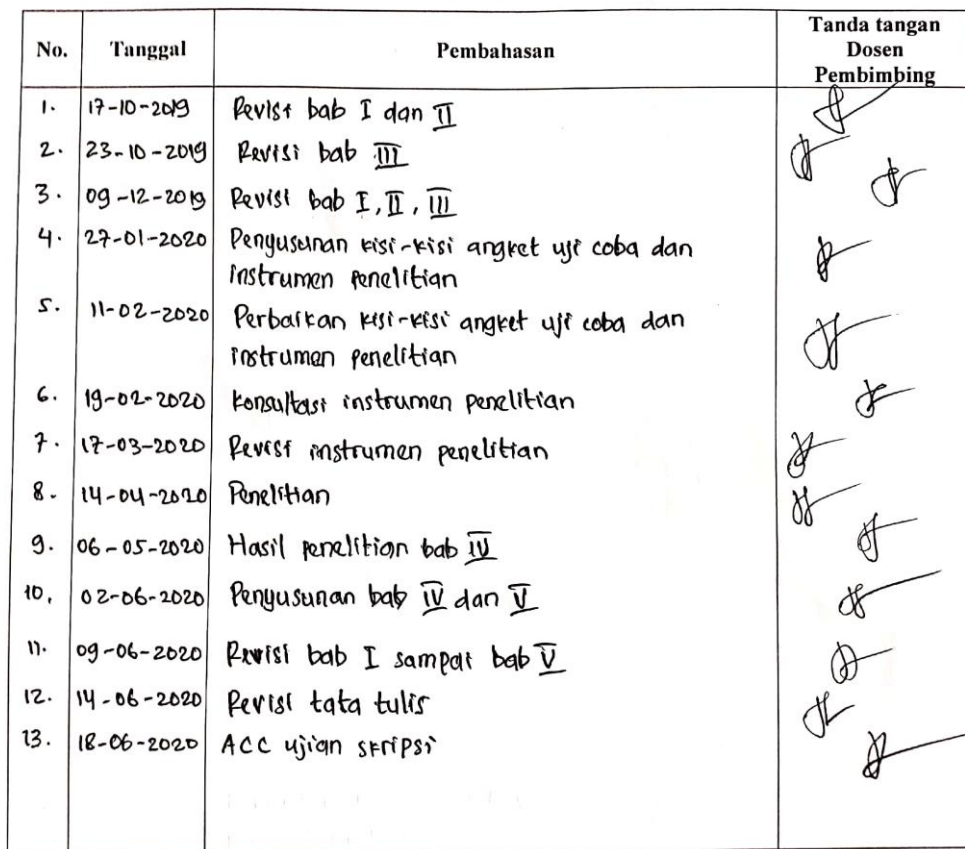 No. Tanggal Pembahasan Tanda tangan
Dosen
Pembimbing
1. 17-10-2019 Revisi bab I dan II
2. 23-10-2019 Revisi bab III
3. 09-12-2019 Revisi bab I, II, III
4. 27-01-2020 Penyusunan kisi-kisi angket uji coba dan
instrumen penelitian
5. 11-02-2020 Perbaikan kisi-kisi angket uji coba dan
instrumen penelitian
6. 19-02-2020 Konsultasi instrumen penelitian
7. 17-03-2020 Revisi instrumen penelitian
8. 14-04-2020 Penelitian
9. 06-05-2020 Hasil penelitian bab IV
10. 02-06-2020 Penyusunan bab IV dan V
11. 09-06-2020 Revisi bab I sampai bab V
12. 14-06-2020 Revisi tata tulis
13. 18-06-2020 ACC ujian skripsi